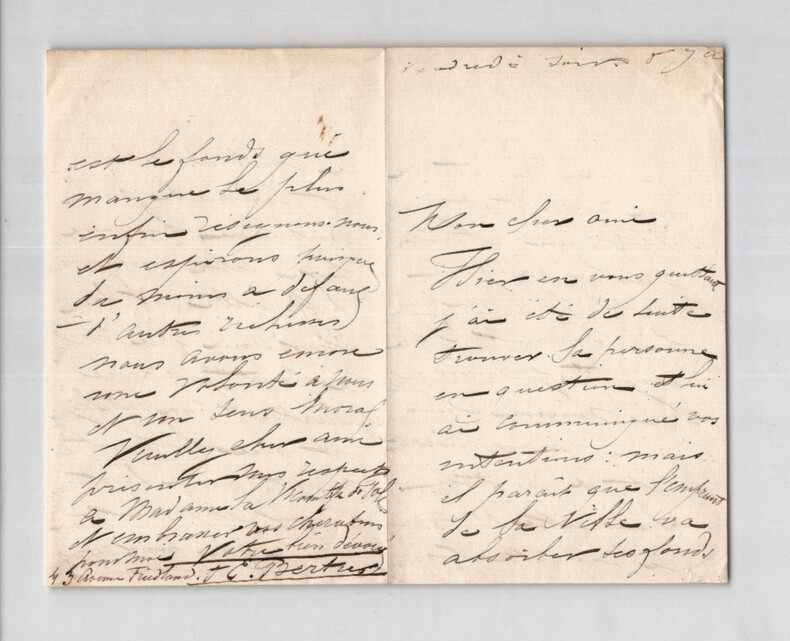 Vendredi soir 8 7
Mon cher ami
Hier en vous quittant
j'ai été de suite
trouver la personne
en question et lui
ai communiqué vos
intentions : mais
il paraît que l'emprunt
de la Ville va
absorber ses fonds
est le fonds qui
manque le plus
enfin résignons-nous
et espérons puisque
du moins à défaut
d'autres richesses
nous avons encore
une volonté à nous
et un sens moral
Veuillez cher ami
présenter mes respects
à Madame la Vicomtesse de
et embrasser vos
pour moi Votre bien dévoué
43 Avenue Friedland. E. Bertier